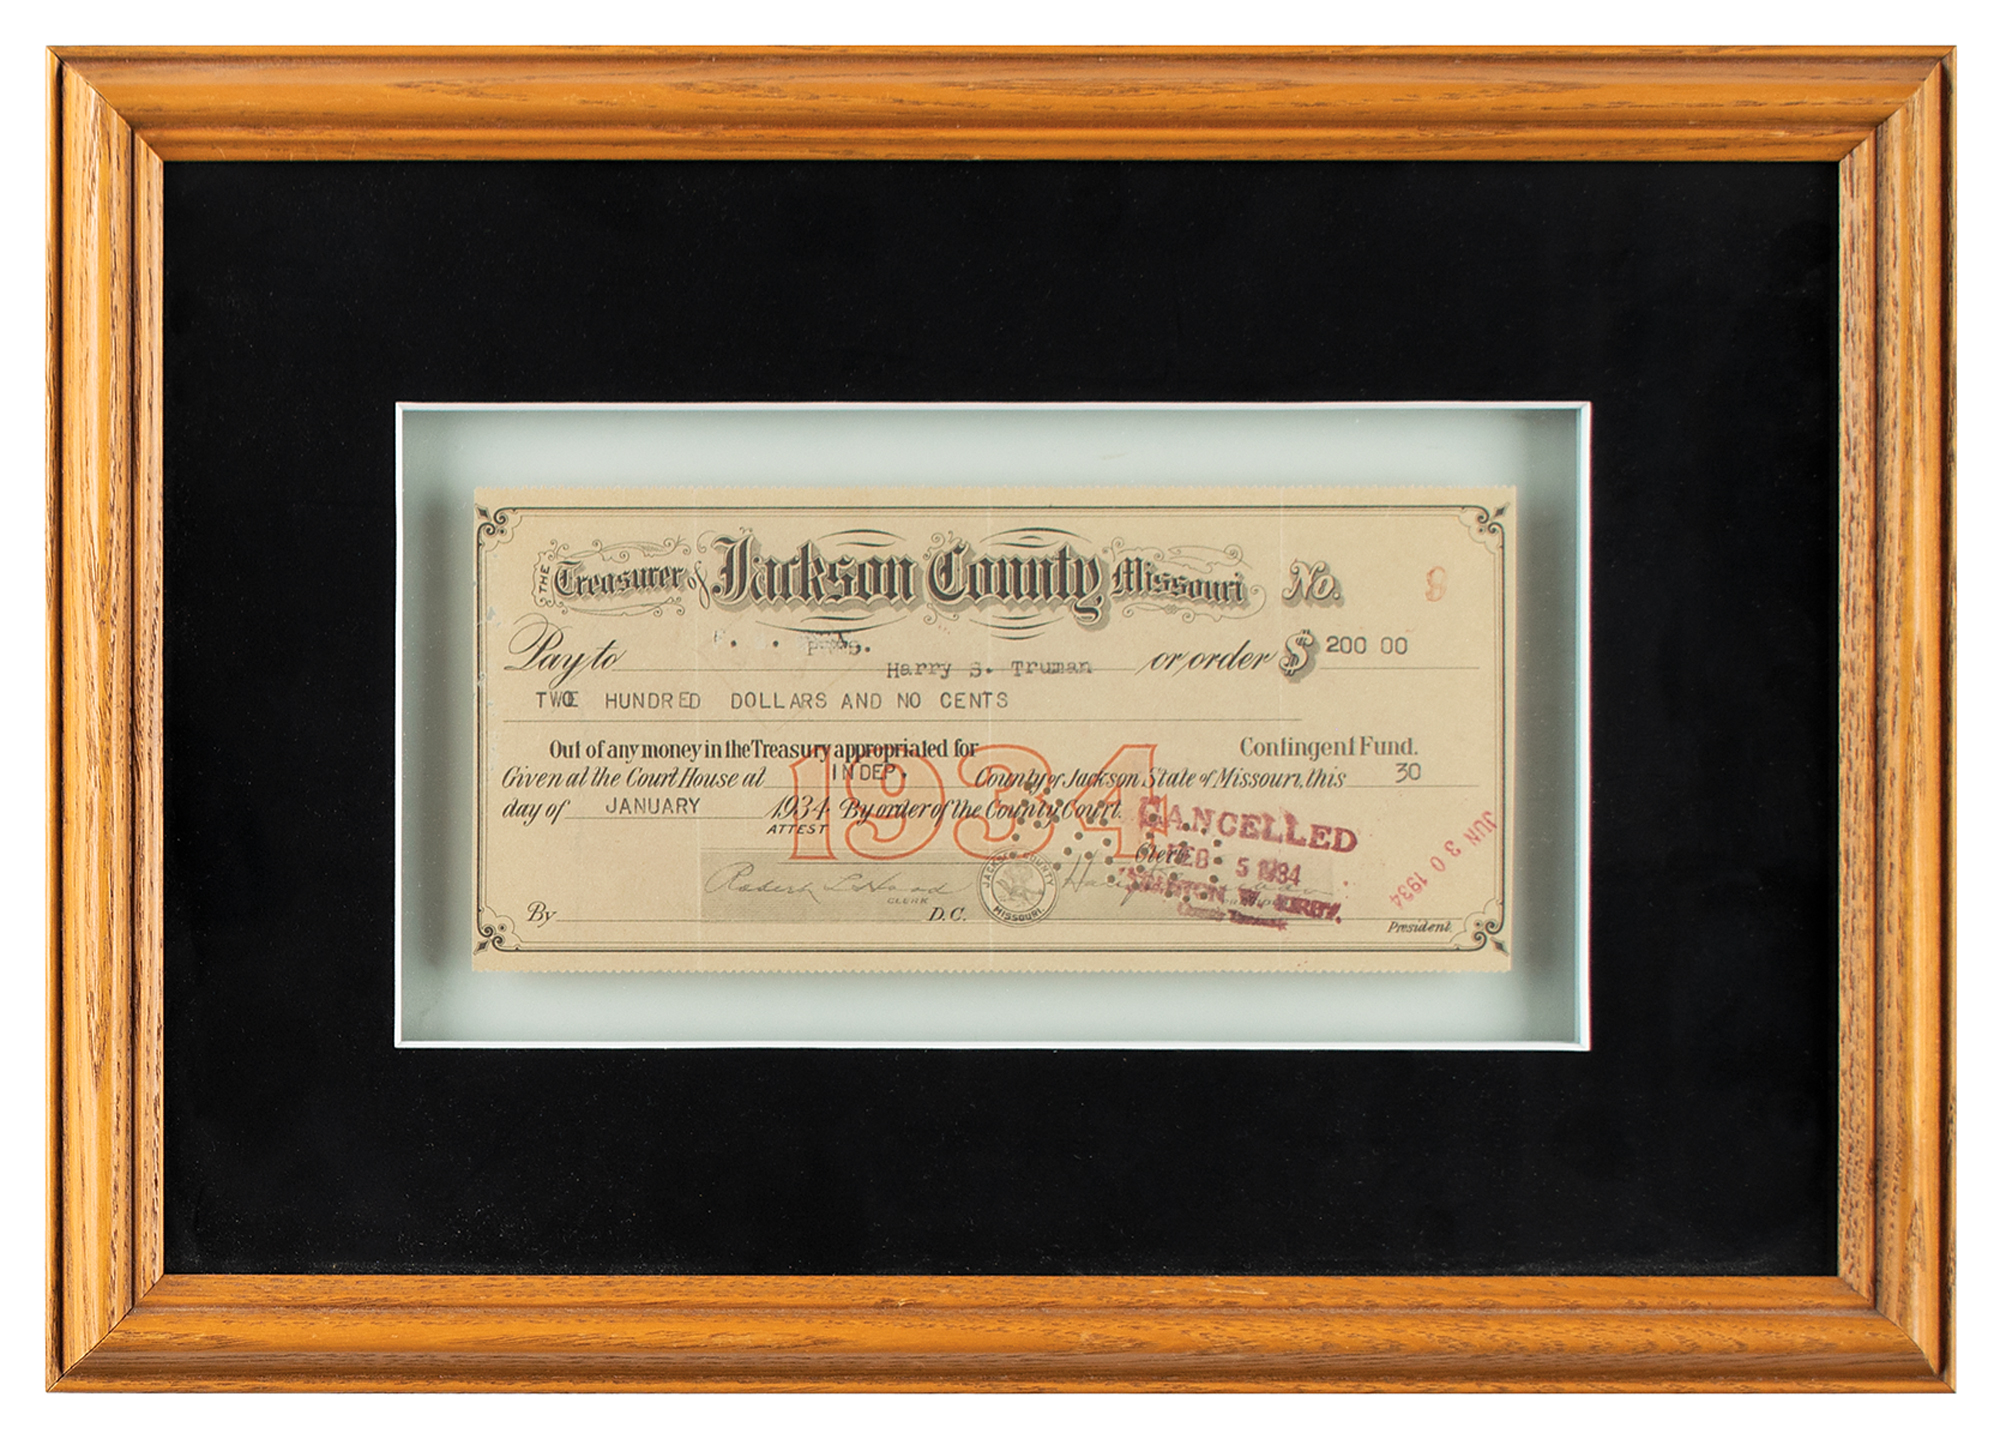 THE Treasurer of Jackson County Missouri No. 8
Pay to Harry S. Truman or order $ 200 00
TWO HUNDRED DOLLARS AND NO CENTS
Out of any money in the Treasury appropriated for Contingent Fund.
Given at the Court House at INDEP. County of Jackson State of Missouri, this 30
day of JANUARY 1934 By order of the County Court.
1934
ATTEST
CANCELLED
Clerk
FEB 5 1934
W. KIRBY.
County
JUN 30 1934
Robert L Hood
CLERK
JACKSON COUNTY MISSOURI.
By D.C. President